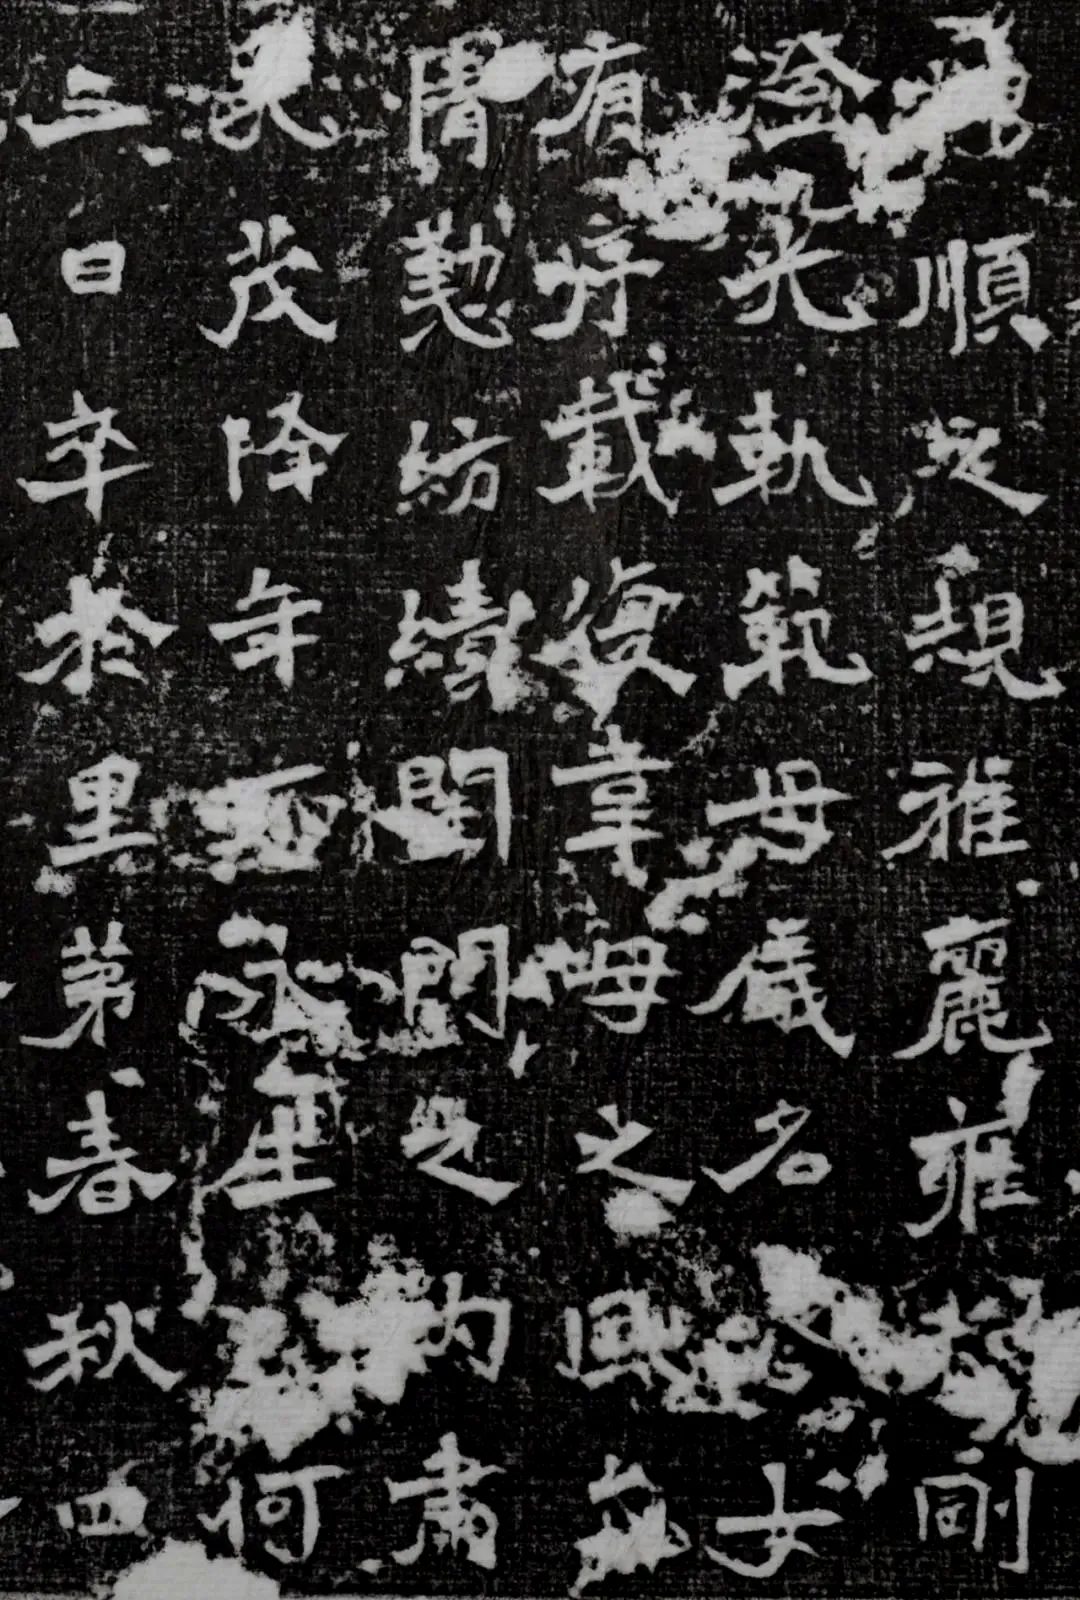 順之規雅麗雍剛
澄光軌範母儀名女
有莘載復韋母之風
階勤紡績閨閫之內肅
茂降年永何
三日卒於里第春秋四